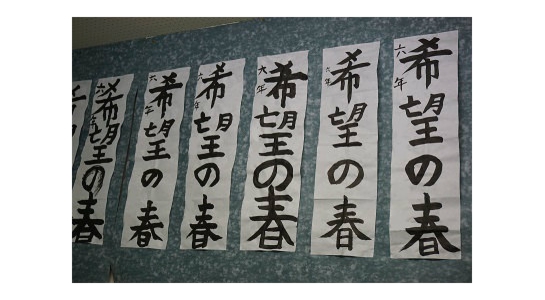 六年
希望の春
六年
希望の春
六年
希望の春
六年
希望の春
六年
希望の春
六年
希望の春